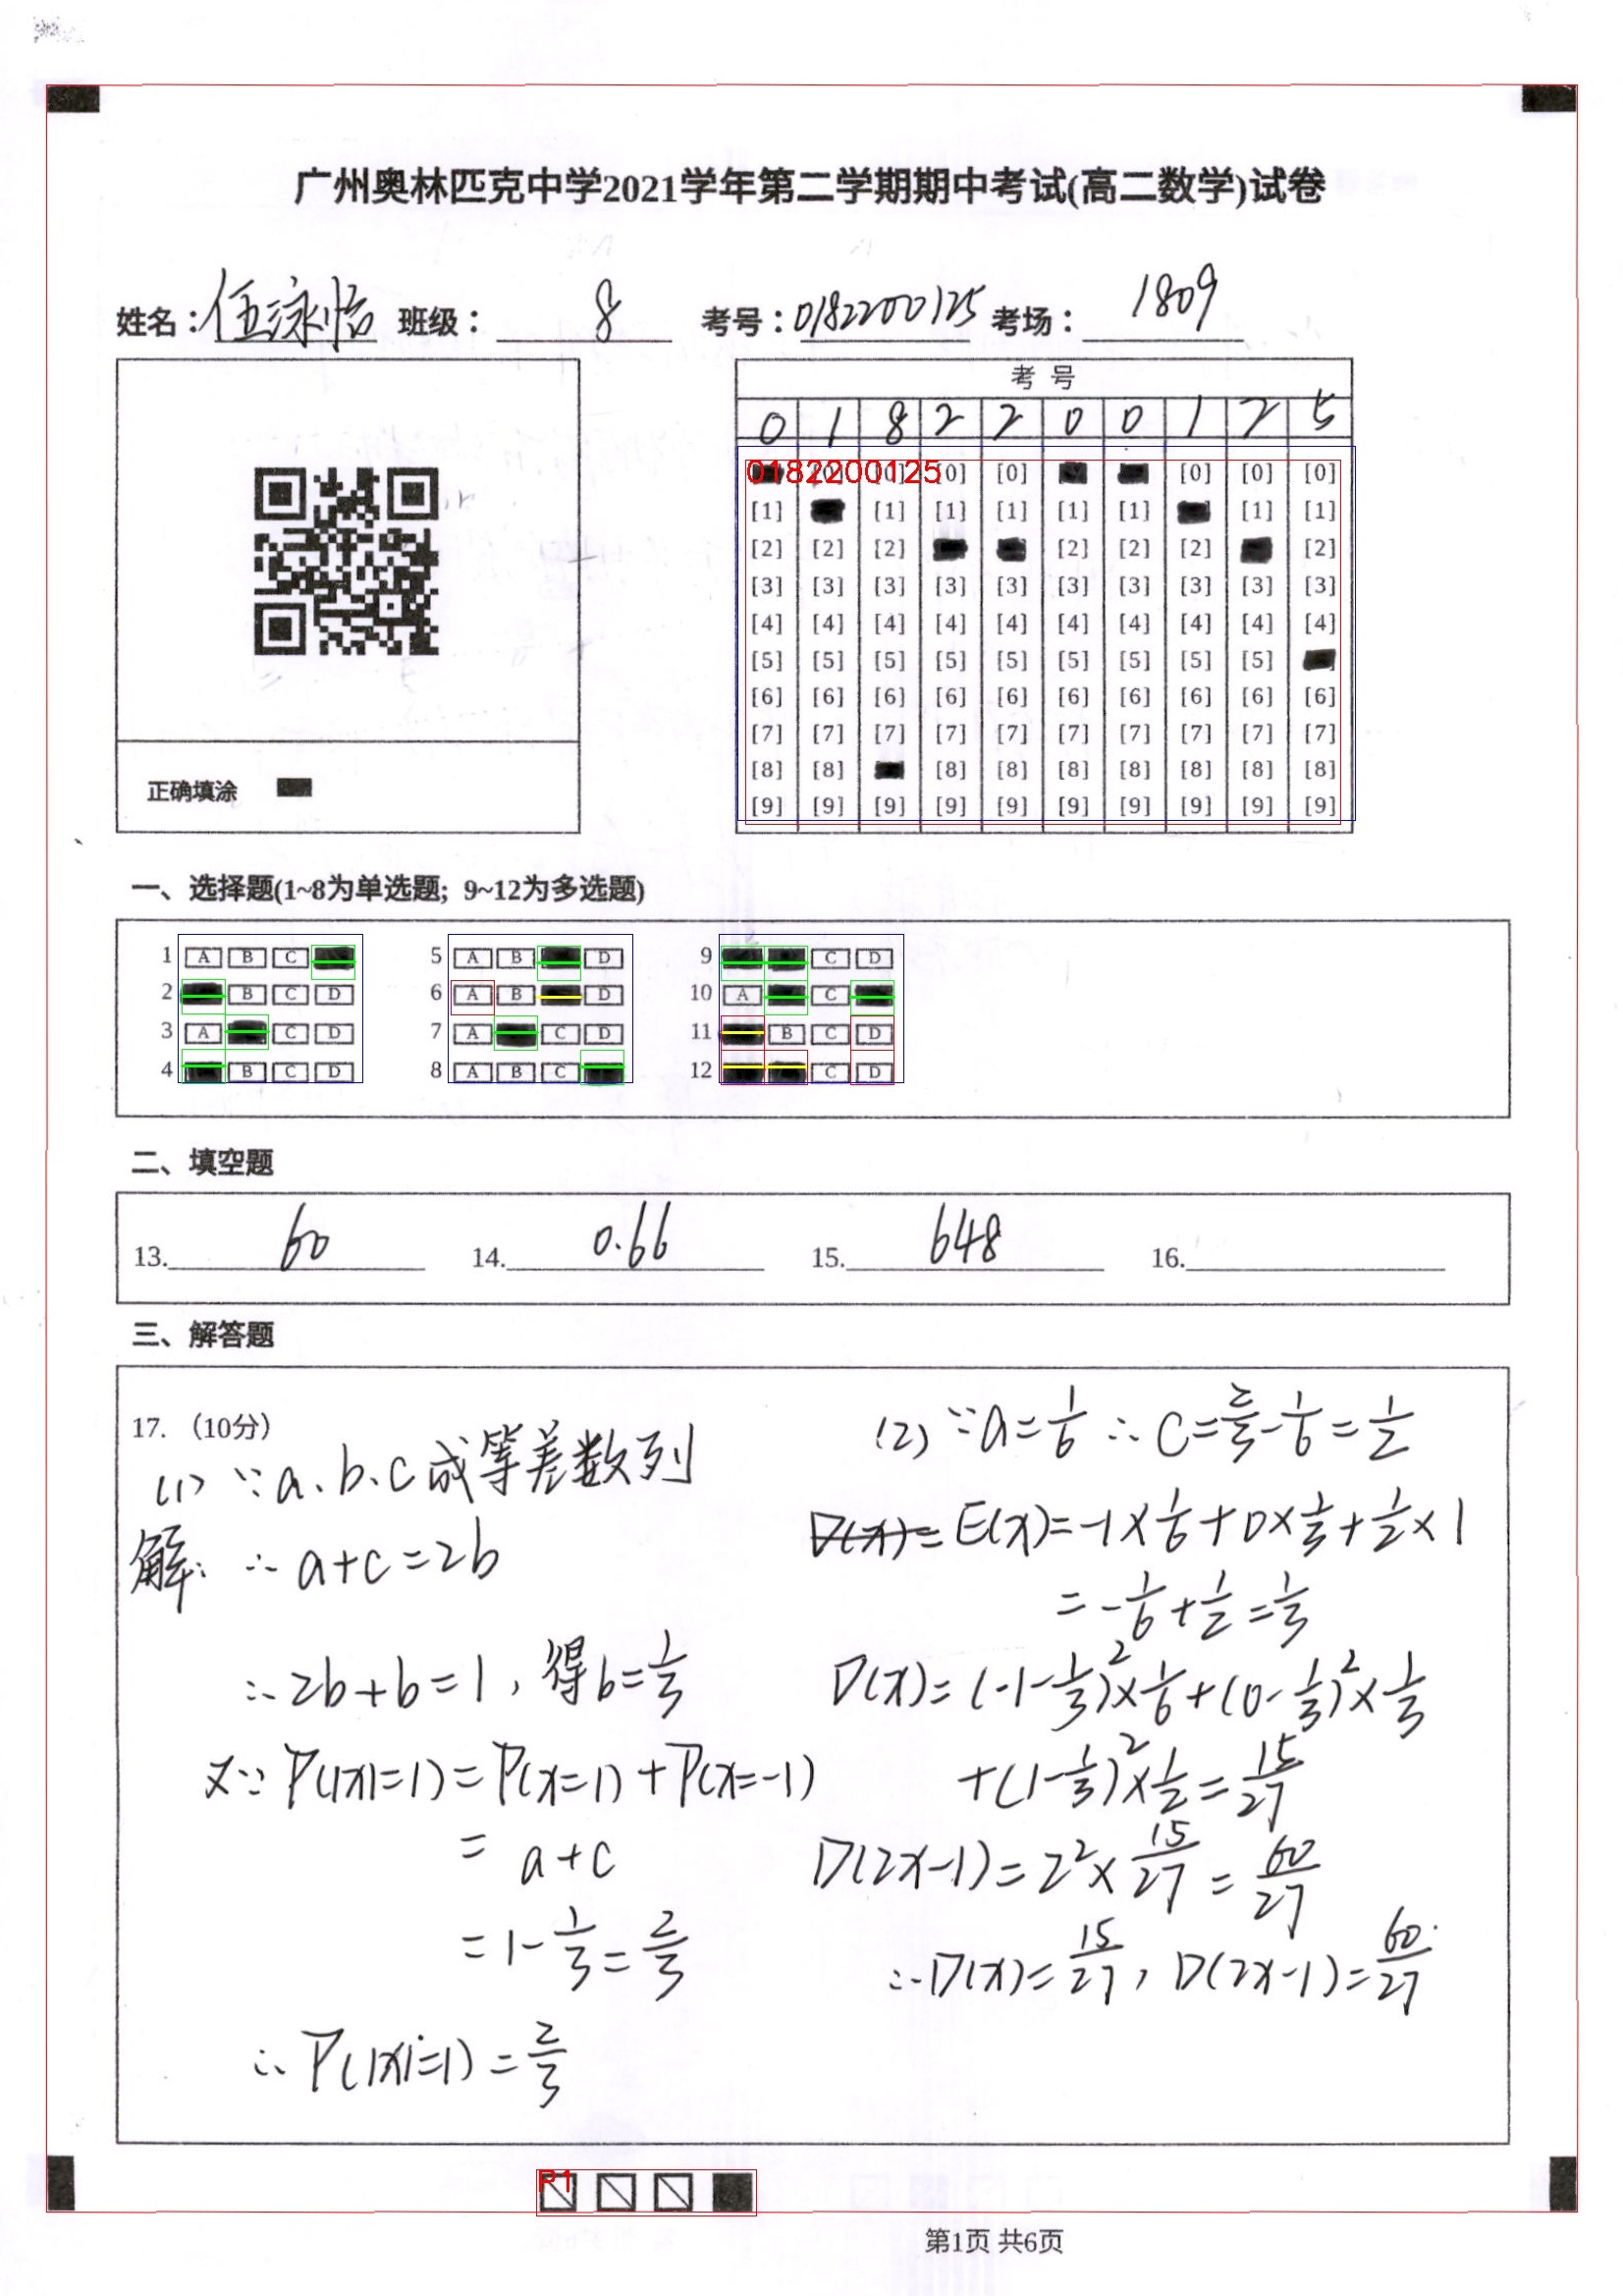 广州奥林匹克中学2021学年第二学期期中考试(高二数学)试卷
姓名：伍泳怡 班级： 8 考号：0182200125 考场： 1809
考 号
0 1 8 2 2 0 0 1 2 5
0182200125 [0] [0] [0] [0] [0]
[1] [1] [1] [1] [1] [1] [1] [1]
[2] [2] [2] [2] [2] [2] [2]
[3] [3] [3] [3] [3] [3] [3] [3] [3] [3]
[4] [4] [4] [4] [4] [4] [4] [4] [4] [4]
[5] [5] [5] [5] [5] [5] [5] [5] [5]
[6] [6] [6] [6] [6] [6] [6] [6] [6] [6]
[7] [7] [7] [7] [7] [7] [7] [7] [7] [7]
[8] [8] [8] [8] [8] [8] [8] [8] [8]
[9] [9] [9] [9] [9] [9] [9] [9] [9] [9]
正确填涂
一、选择题(1~8为单选题; 9~12为多选题)
1 A B C 5 A B D 9 C D
2 B C D 6 A B D 10 A C
3 A C D 7 A C D 11 B C D
4 B C D 8 A B C 12 C D
二、填空题
13. 60 14. 0.66 15. 648 16.
三、解答题
17.（10分）
(1) ∵a、b、c成等差数列
解： ∴a+c=2b
∴2b+b=1，得b=1/3
又∵P(|x|=1)=P(x=1)+P(x=-1)
= a+c
=1-1/3=2/3
∴P(|x|=1)=2/3
(2) ∵a=1/6 ∴c=2/3-1/6=1/2
D(x)= E(x)=-1×1/6+0×1/3+1/2×1
=-1/6+1/2=1/3
D(x)=(-1-1/3)²×1/6+(0-1/3)²×1/3
+(1-1/3)²×1/2=15/27
D(2x-1)=2²×15/27=60/27
∴D(x)=15/27，D(2x-1)=60/27
P1
第1页 共6页